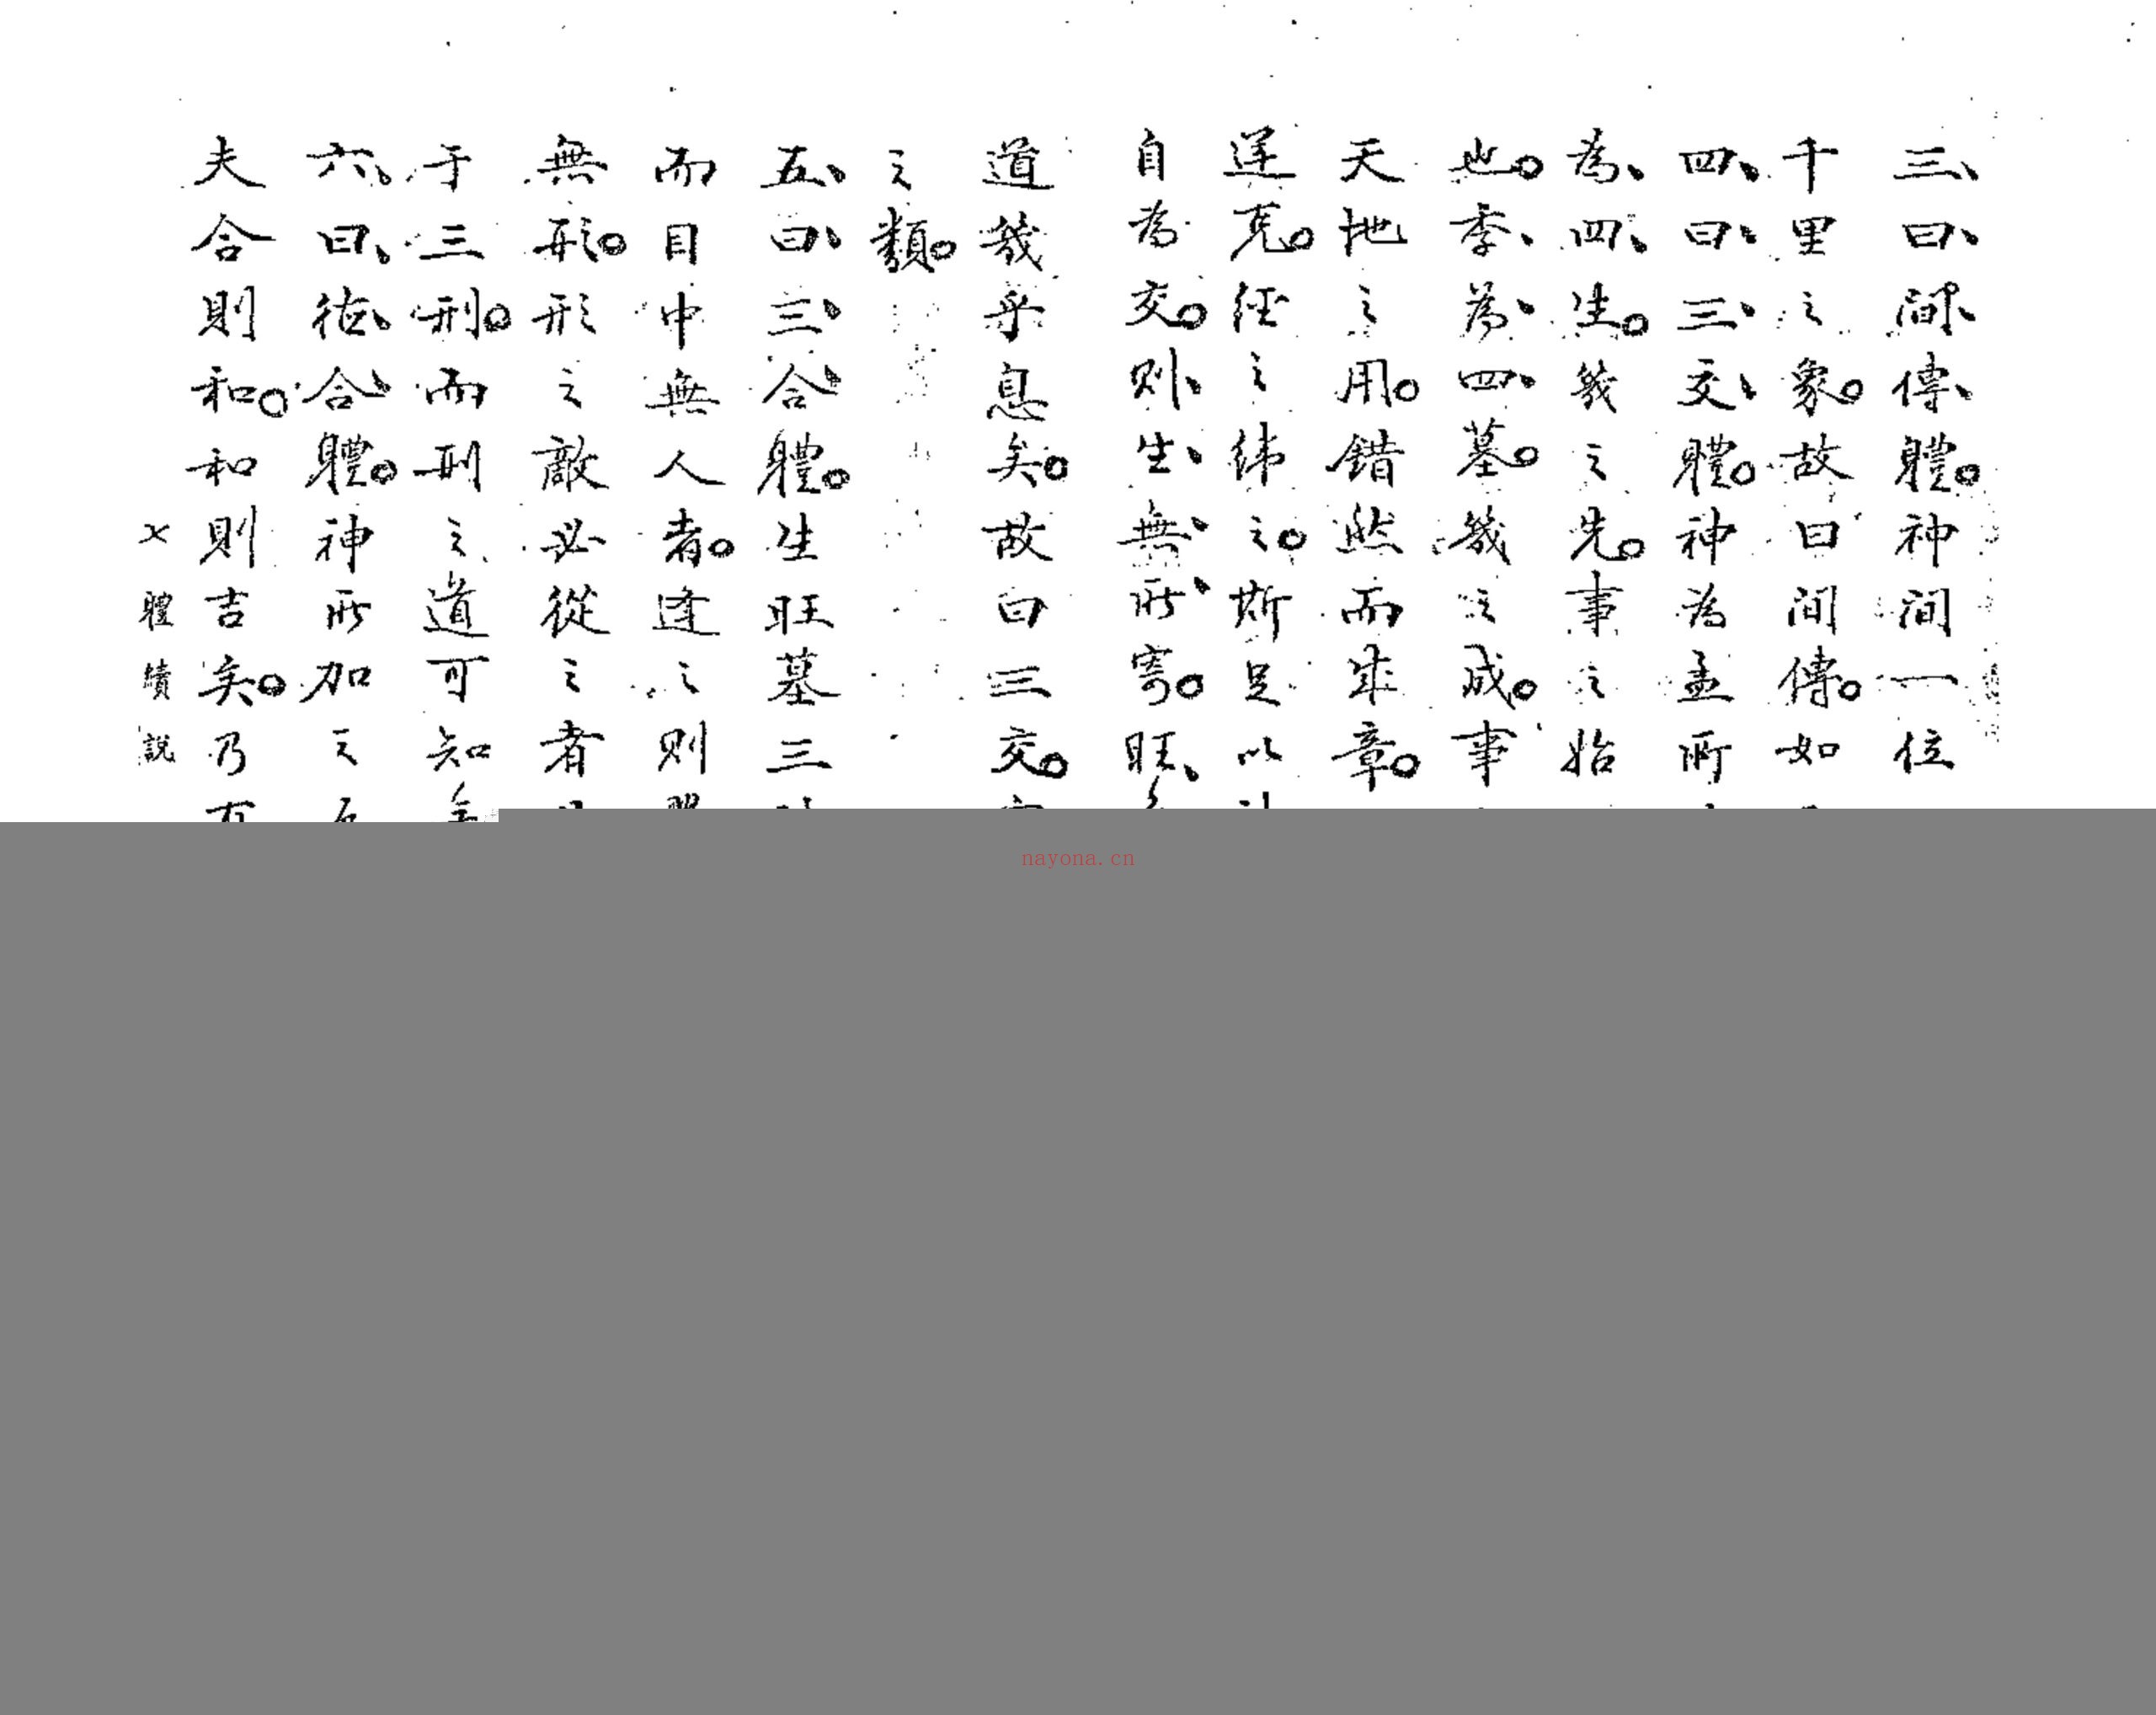 三曰間傳體。神間一位
千里之象。故曰間傳。如
四曰三交體。神為孟所
為四生。幾之先。事之始
也。季為四墓。幾之成。事
天地之用。錯然而成章。
逆克。經之緯之。斯足以
自為交。則生無所寄。旺
道幾乎息矣。故曰三交。
之類。
五曰三合體。生旺墓三
而目中無人者。逢之則
無形。形之敵必從之者
于三刑。而刑之道可知
六曰德合體。神所加之
夫合則和。和則吉矣。乃
體績說
nayona.cn